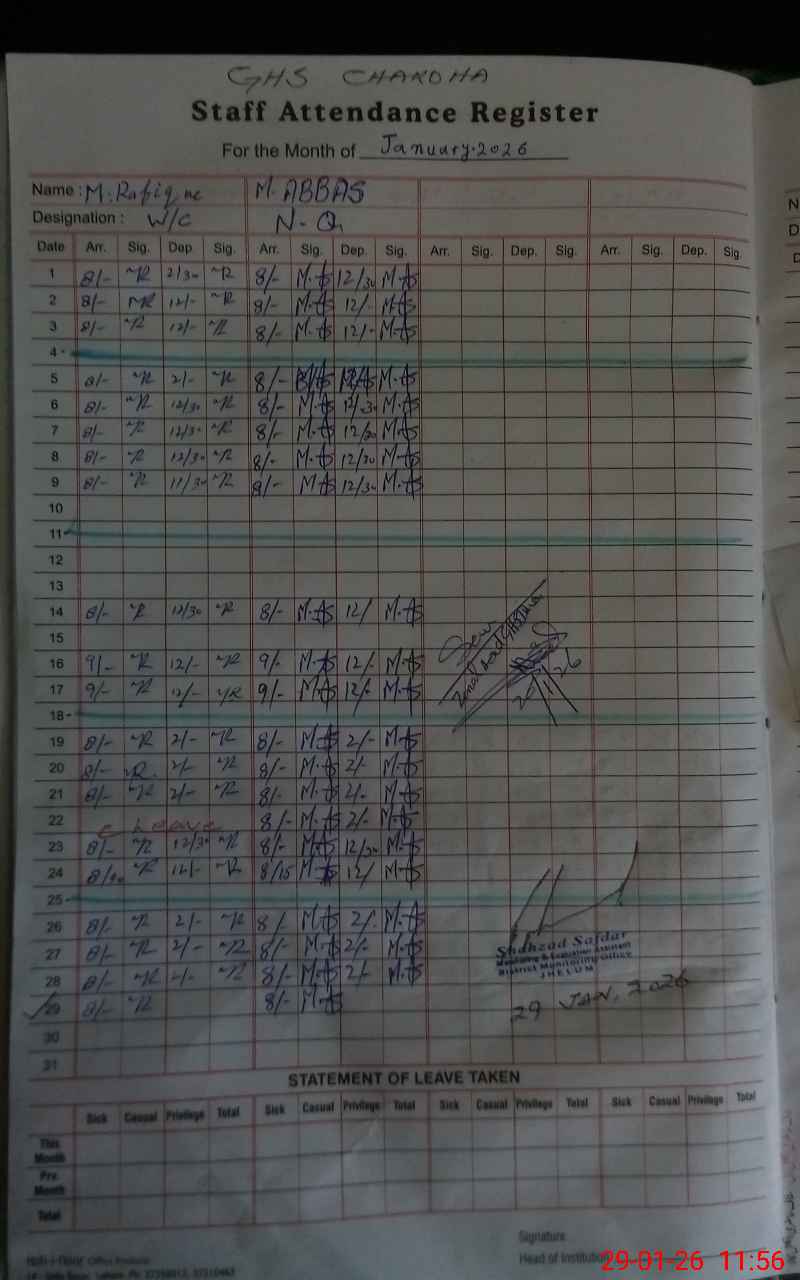 GHS CHAKDHA
Staff Attendance Register
For the Month of January.2026
Name : M.Rafique M. ABBAS
Designation : W/C N-Q
Date Arr. Sig. Dep. Sig. Arr. Sig. Dep. Sig. Arr. Sig. Dep. Sig. Arr. Sig. Dep. Sig.
1 8/- MR 2/30 MR 8/- M.AS 12/30 M.AS
2 8/- MR 12/- MR 8/- M.AS 12/- M.AS
3 8/- MR 12/- MR 8/- M.AS 12/- M.AS
4
5 8/- MR 2/- MR 8/- M.AS
6 8/- MR 12/30 MR 8/- M.AS 12/30 M.AS
7 8/- MR 12/30 MR 8/- M.AS 12/30 M.AS
8 8/- MR 12/30 MR 8/- M.AS 12/30 M.AS
9 8/- MR 11/30 MR 8/- M.AS 12/30 M.AS
10
11
12
13
14 8/- MR 12/30 MR 8/- M.AS 12/ M.AS
15
16 9/- MR 12/- MR 9/- M.AS 12/- M.AS
17 9/- MR 12/- MR 9/- M.AS 12/- M.AS
18
19 8/- MR 2/- MR 8/- M.AS 2/- M.AS
20 8/- MR 2/- MR 8/- M.AS 2/- M.AS
21 8/- MR 2/- MR 8/- M.AS 2/- M.AS
22 C Leave 8/- M.AS 2/- M.AS
23 8/- MR 12/30 MR 8/- M.AS 12/30 M.AS
24 MR 12/- MR 8/15 M.AS 12/ M.AS
25
26 8/- MR 2/- MR 8/- M.AS 2/- M.AS
27 8/- MR 2/- MR 8/- M.AS 2/- M.AS
28 8/- MR 2/- MR 8/- M.AS 2/- M.AS
29 8/- MR 8/- M.AS
30
31
Shahzad Safdar
Monitoring & Evaluation Assistant
District Monitoring Office
JHELUM
29 JAN, 2026
STATEMENT OF LEAVE TAKEN
Sick Casual Privilege Total Sick Casual Privilege Total Sick Casual Privilege Total Sick Casual Privilege Total
This Month
Pre. Month
Total
Signature
Head of Institution
29-01-26 11:56